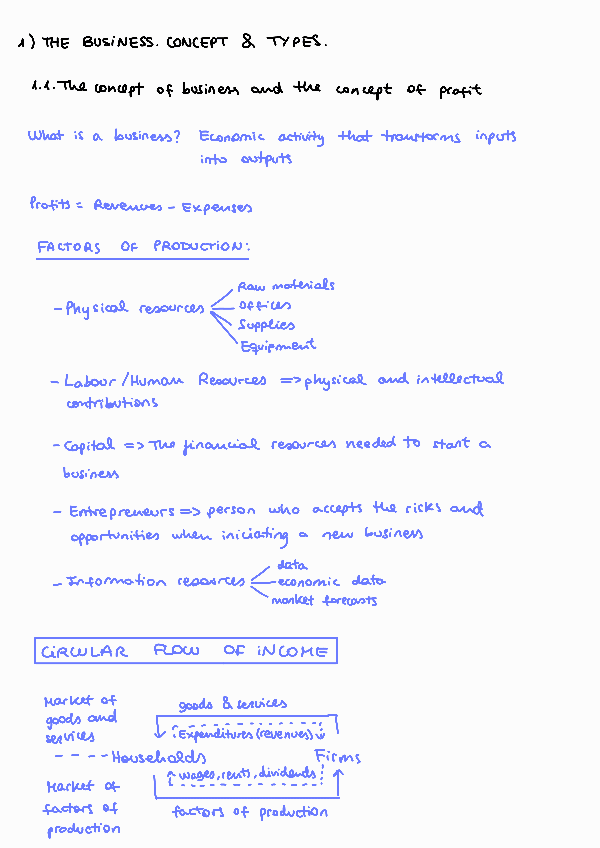 1) THE BUSINESS. CONCEPT & TYPES.
1.1. The concept of business and the concept of profit
What is a business? Economic activity that transforms inputs
into outputs
Profits = Revenues - Expenses
FACTORS OF PRODUCTION:
- Physical resources
Raw materials
Offices
Supplies
Equipment
- Labour / Human Resources => physical and intellectual
contributions
- Capital => The financial resources needed to start a
business
- Entrepreneurs => person who accepts the risks and
opportunities when iniciating a new business
- Information resources
data
economic data
market forecasts
CIRCULAR FLOW OF INCOME
Market of
goods and
services
goods & services
Expenditures (revenues)
---- Households
Firms
wages, rents, dividends
Market of
factors of
production
factors of production